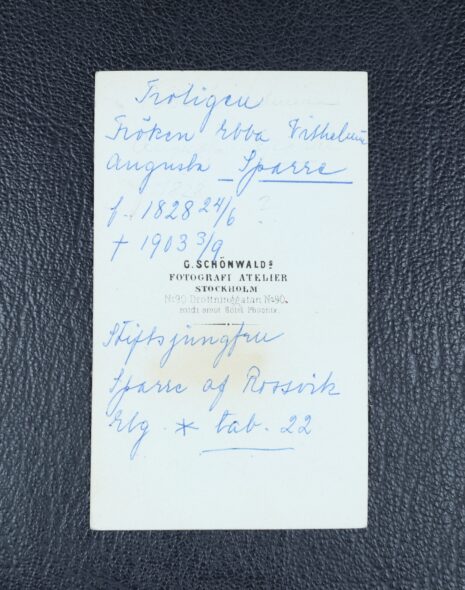 Troligen
Fröken Ebba Vilhelmin
Augusta Sparre
f. 1828 24/6 ?
† 1903 3/9
G. SCHÖNWALDS
FOTOGRAFI ATELIER
STOCKHOLM
No 90 Drottninggatan No 90.
midt emot Hôtel Phoenix
Stiftsjungfru
Sparre af Rossvik
Elg. * tab. 22